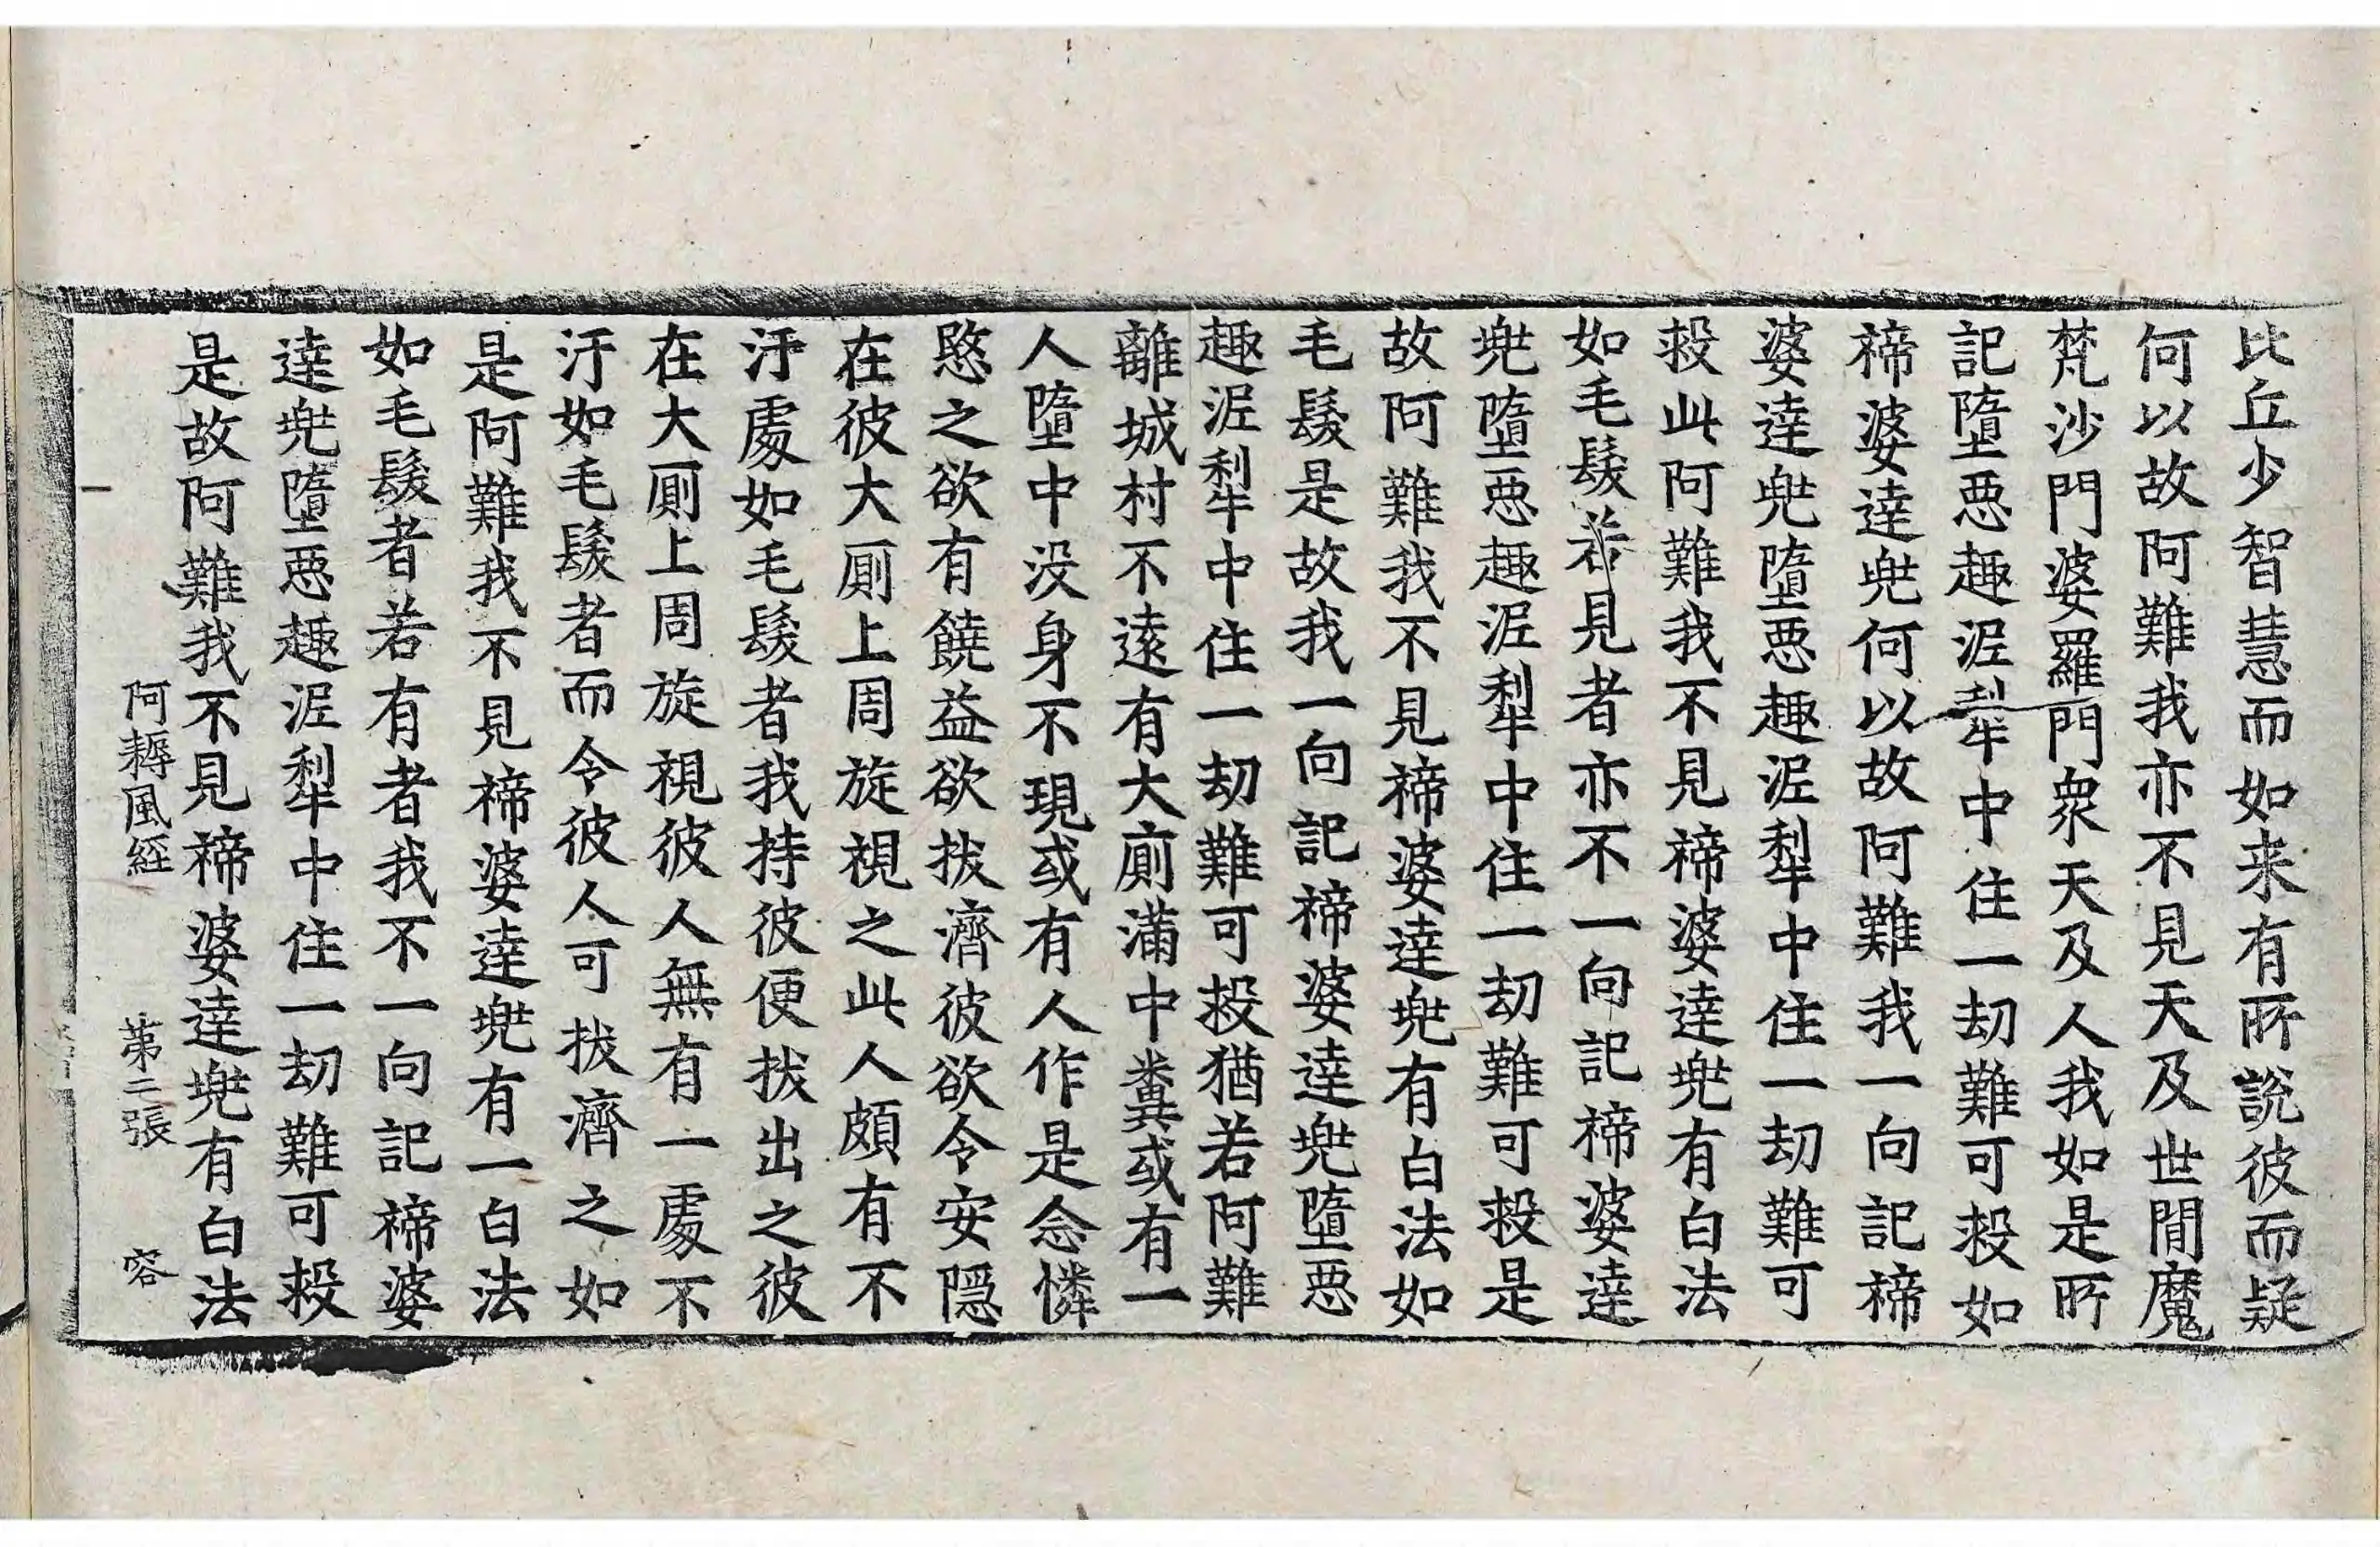 比丘少智慧而如来有所說彼而疑
何以故阿難我亦不見天及世閒魔
梵沙門婆羅門衆天及人我如是所
記墮惡趣泥犁中住一劫難可救如
褅婆達兠何以故阿難我一向記褅
婆達兠墮惡趣泥犁中住一劫難可
救此阿難我不見褅婆達兠有白法
如毛髮若見者亦不一向記褅婆達
兠墮惡趣泥犁中住一劫難可救是
故阿難我不見褅婆達兠有白法如
毛髮是故我一向記褅婆達兠墮惡
趣泥犁中住一劫難可救猶若阿難
離城村不遠有大廁滿中糞或有一
人墮中没身不現或有人作是念憐
愍之欲有饒益欲拔濟彼欲令安隠
在彼大廁上周旋視之此人頗有不
汙處如毛髮者我持彼便拔出之彼
在大廁上周旋視彼人無有一處不
汙如毛髮者而令彼人可拔濟之如
是阿難我不見褅婆達兠有一白法
如毛髮者若有者我不一向記褅婆
達兠墮惡趣泥犁中住一劫難可救
是故阿難我不見褅婆達兠有白法
阿耨風経 第二張 容